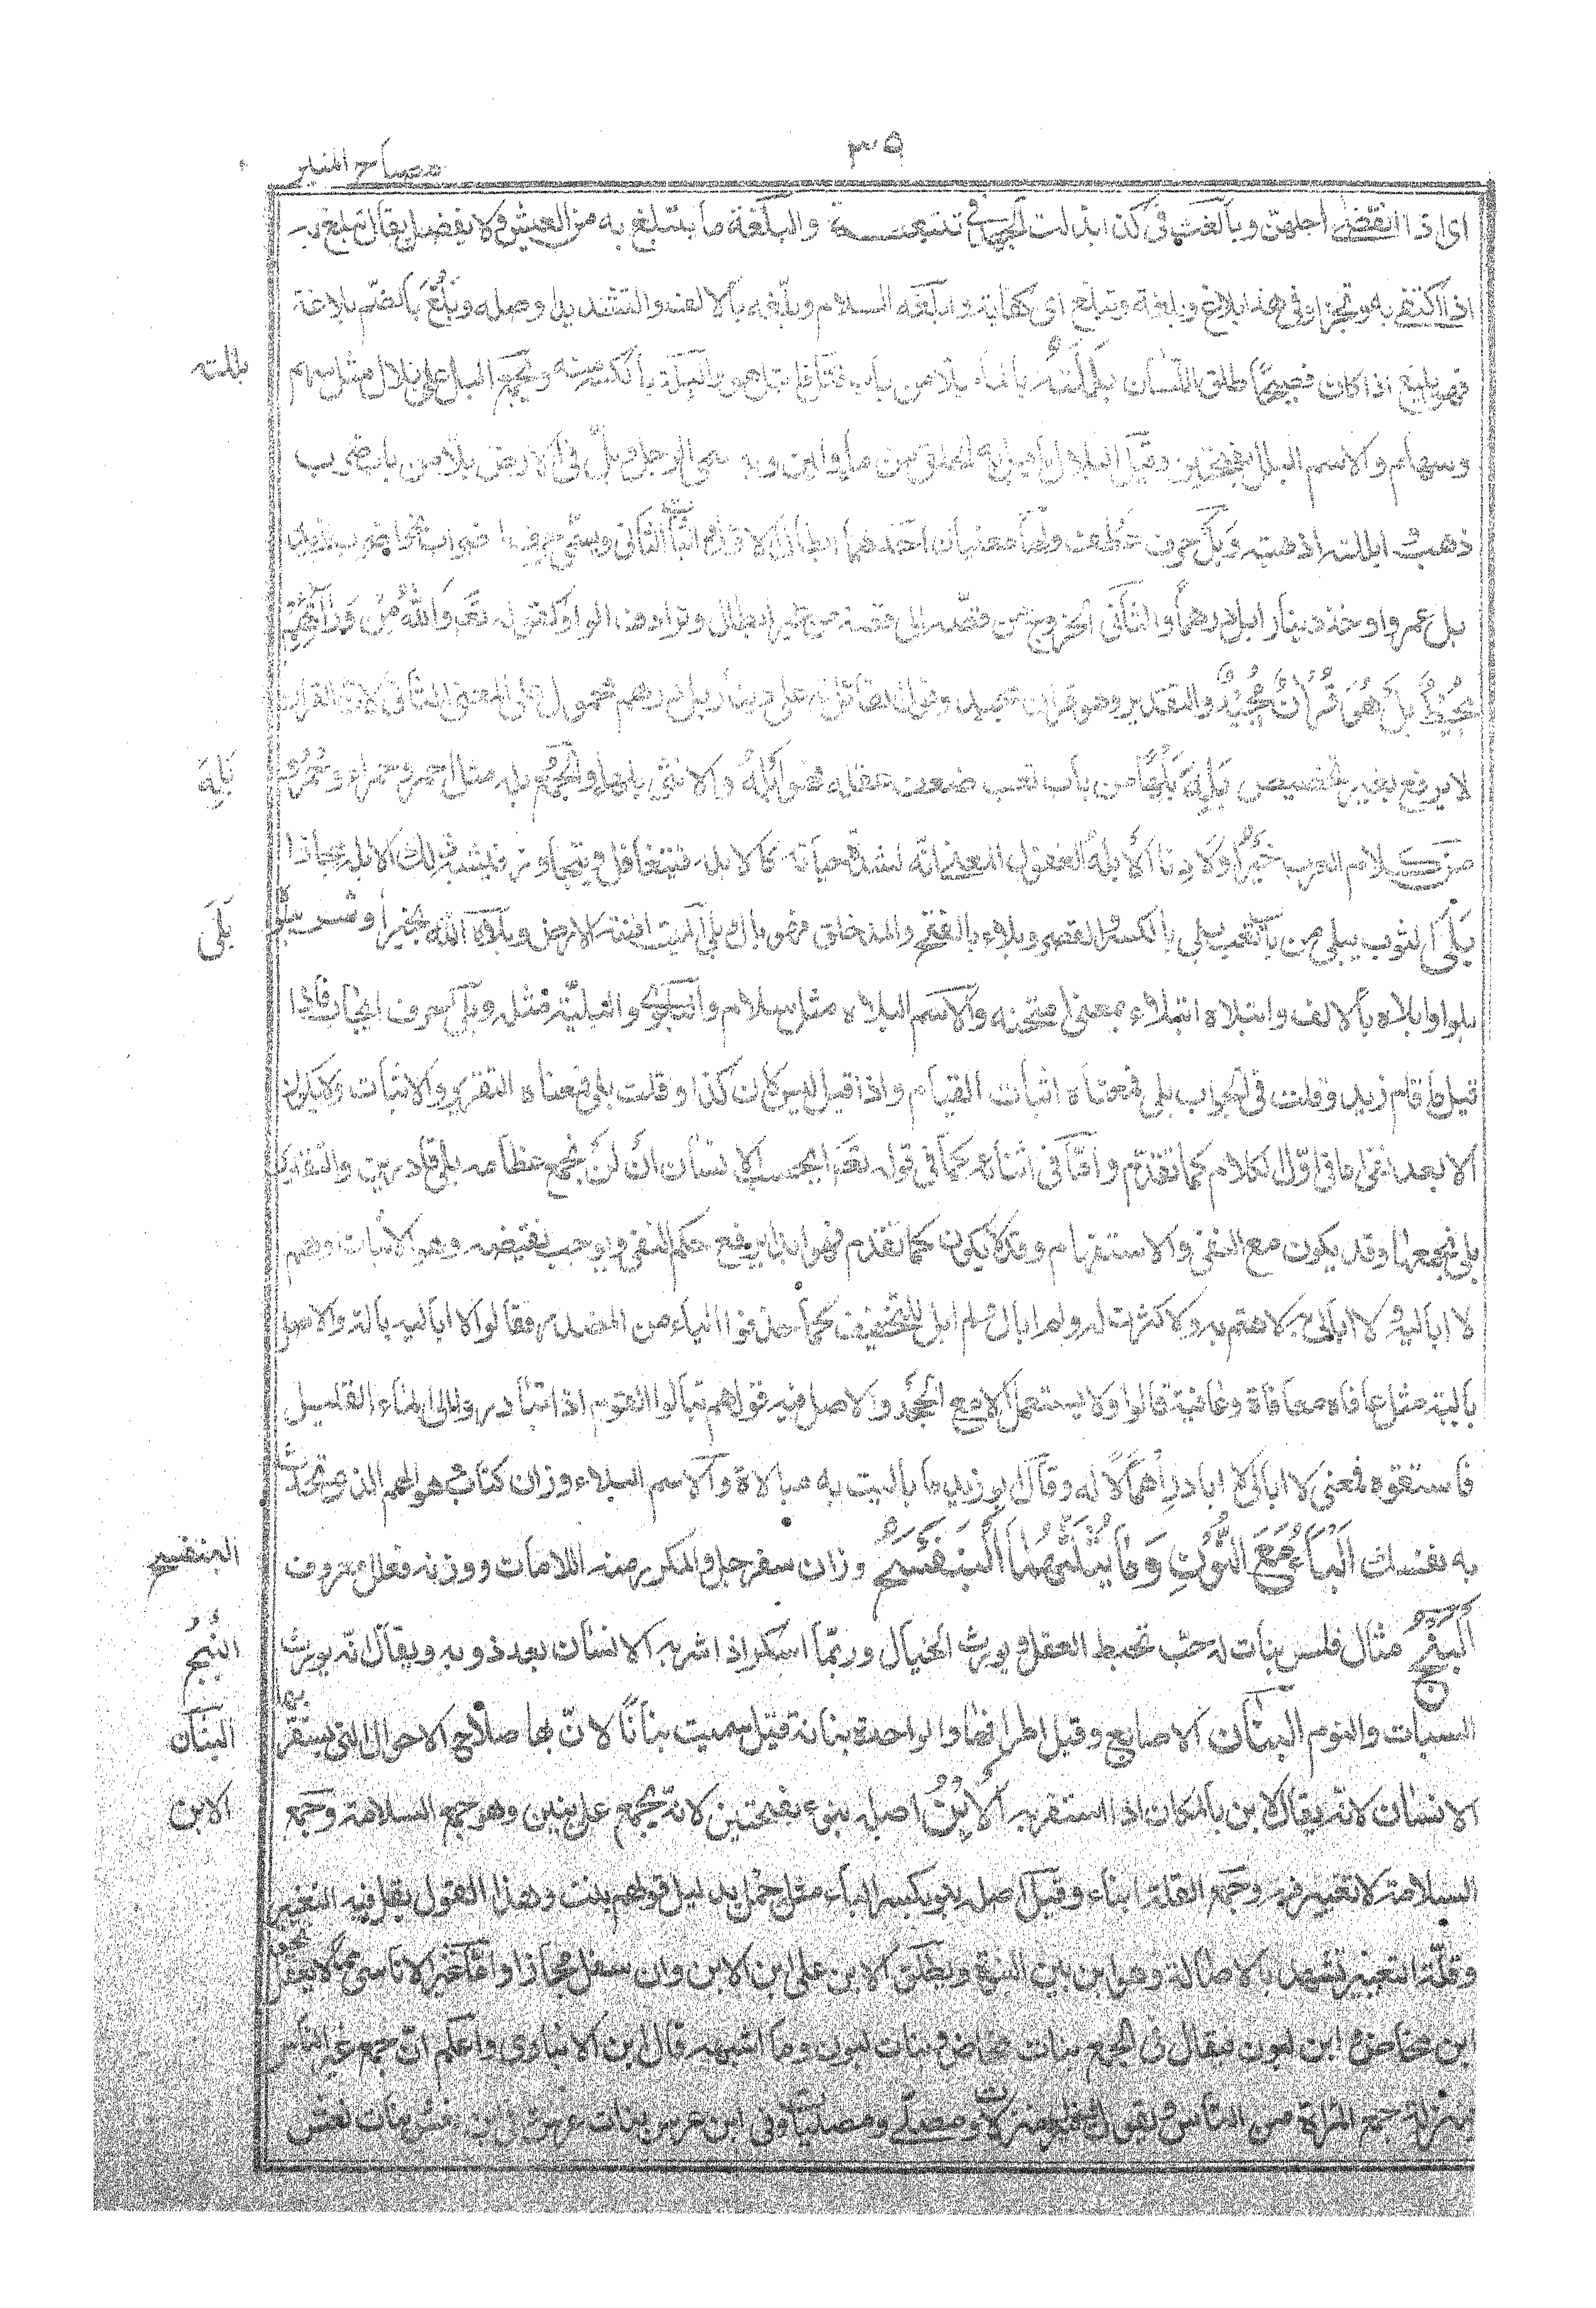 ٣٥
مصباح المنير
اى اذا انقضى اجلهن وبالغت فى كذا بذلت الجهد فى تتبعه والبلغة ما يتبلغ به من العيش ولا يفضل يقال تبلغ به
اذا اكتفى به وتجزا وفى هذا بلاغ وبلغة وتبلغ اى كفاية وابلغه السلام وبلّغه بالالف والتشديد اوصله وبَلُغَ بالضم بلاغة
فهو بليغ اذا كان فصيحًا طلق اللسان بَلَلْتُهُ بالماء بلا من باب قتل فابتل هو والبلة بالكسر منه ويجمع البل على بلال مثل سهم
بللته
وسهام والاسم البلل بفتحتين وقيل البلال ما يبل به الحلق من ماء ولبن وبه سمى الرجل وبلّ فى الارض بلا من باب ضرب
ذهب وابللته اذهبته وبَلْ حرف عطف ولها معنيان احدهما ابطال الاول واثبات الثانى وتسمى حرف اضراب نحو اضرب زيدا
بل عمروا وخذ دينارا بل درهما والثانى الخروج من قصّة الى قصة من غير ابطال وترادف الواو كقوله تعَ وَاللهُ مِنْ وَرَآئِهِمْ
مُحِيْطٌ بَلْ هُوَ قُرْاٰنٌ مَجِيْدٌ والتقدير وهو قران مجيد وقول القائل له على دينار بل درهم محمول على المعنى الثانى لان الاقرار
لا يرفع بغير تخصيص بَلِهَ بَلَهًا من باب تعب ضعف عقله فهو اَبْلَهُ والانثى بلهاء والجمع بله مثل احمر وحمراء وحُمْر و
بَلِهَ
من كلام العرب خَيْرُ اَولَادِنا الاَبْلَهُ الغفول المعنى انّه لشدة حيائه كالابله فيتغافل ويتجاوز فيشبه ذلك الابله مجازا
بَلِىَ الثوب يبلى من باب تعب بلى بالكسر والقصر وبلاء بالفتح والمد خلق فهو بال وبلى الميت افنته الارض وبلاه الله بخير او شر يبلوه
بَلَى
بلوا وابلاه بالالف وابتلاه ابتلاء بمعنى امتحنه والاسم البلاء مثل سلام والبلوى والبليّة مثله وبلى حرف ايجاب فاذا
قيل ما قام زيد وقلت فى الجواب بلى فمعناه اثبات القيام واذا قيل اليس كان كذا وقلت بلى فمعناه التقرير والاثبات ولا يكون
الا بعد نفى اما فى اوّل الكلام كما تقدّم وامّا فى اثنائه كما فى قوله تعَ ايحسب الانسان ان لن نجمع عظامه بلى قادرين والتقدير
بلى نجمعها وقد يكون مع النفى والاستفهام وقد لا يكون كما تقدم فهو ابدا يرفع حكم النفى ويوجب نقيضه وهو الاثبات وقولهم
لا اباليه ولا ابالى به لا اهتم به ولا اكترث له ولم ابال ولم ابل للتخفيف كما حذفوا الياء من المصدر فقالوا لا اباليه بالة والاصل
بالية مثل عافاه معافاة وعافية قالوا ولا يستعمل الا مع الجحد والاصل فيه قولهم تبالوا القوم اذا تبادروا الى الماء القليل
فاستقوه فمعنى لا ابالى لا ابادر اهمالا له وقال ابو زيد ما باليت به مبالاة والاسم البلاء وزان كتاب وهو الهم الذى تحدث
به نفسك اَلْبَاءُ مَعَ النُّوْنِ وَمَا يُثَلِّثُهُمَا اَلْبَنَفْسَجُ وزان سفرجل والمكرر منه اللامات ووزنه فعلل معروف
البنفسج
اَلْبَنْجُ مثال فلس نبات له حبّ تخبط العقل ويورث الخبال وربّما اسكر اذا شربه الانسان بعد ذوبه ويقال انه يورث
البَنْجُ
السبات والنوم البنان الاصابع وقيل اطرافها والواحدة بنانة قيل سميت بنانًا لانّ بها صلاح الاحوال التى يستقرّ بها
البنان
الانسان لانه يقال ابن بالمكان اذا استقر به اَلاِبْنُ اصله بنو بفتحتين لانه يجمع على بنين وهو جمع السلامة وجمع
الابن
السلامة لا تغيير فيه وجمع القلة ابناء وقيل اصله بنو بكسر الباء مثل حمل بدليل قولهم بنت وهذا القول يقل فيه التغيير
وقلّة التغيير تشهد بالاصالة وهو ابن بين البنوة ويطلق الابن على ابن الابن وان سفل مجازا وامّا غير الاناسى مما لا يعقل نحو
ابن مخاض وابن لبون فيقال فى الجمع بنات مخاض وبنات لبون وما اشبهه قال ابن الانبارى واعلم ان جمع غير الناس
بمنزلة جمع المراة من الناس تقول منزل ومنزلات ومصلّى ومصليات وفى ابن عرس بنات عرس وفى ابن نعش بنات نعش